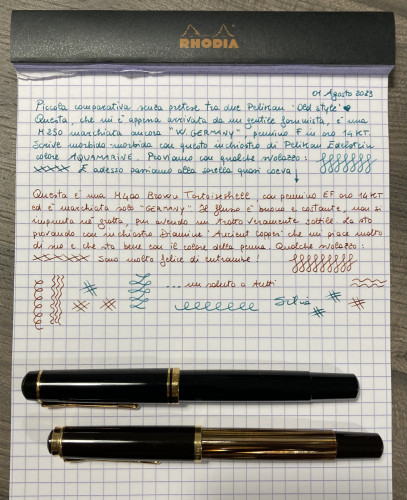 RHODIA
01 Agosto 2023
Piccola comparativa senza pretese tra due Pelikan "Old style" ♥
Questa, che mi è appena arrivata da un gentile forumista, è una
M250 marchiata ancora "W. GERMANY", pennino F in oro 14KT.
Scrive morbido morbido con questo inchiostro di Pelikan Edelstein
colore AQUAMARINE. Proviamo con qualche svolazzo:
E adesso passiamo alla sorella quasi coeva
Questa è una M400 Brown Tortoiseshell, con pennino EF oro 14KT
ed è marchiata solo "GERMANY". Il flusso è buono e costante, non si
impunta né gratta, pur avendo un tratto veramente sottile. La sto
provando con inchiostro Diamine "Ancient Copper" che mi piace molto
di suo e che sta bene con il colore della penna. Qualche svolazzo:
Sono molto felice di entrambe!
... un saluto a tutti
Silvia